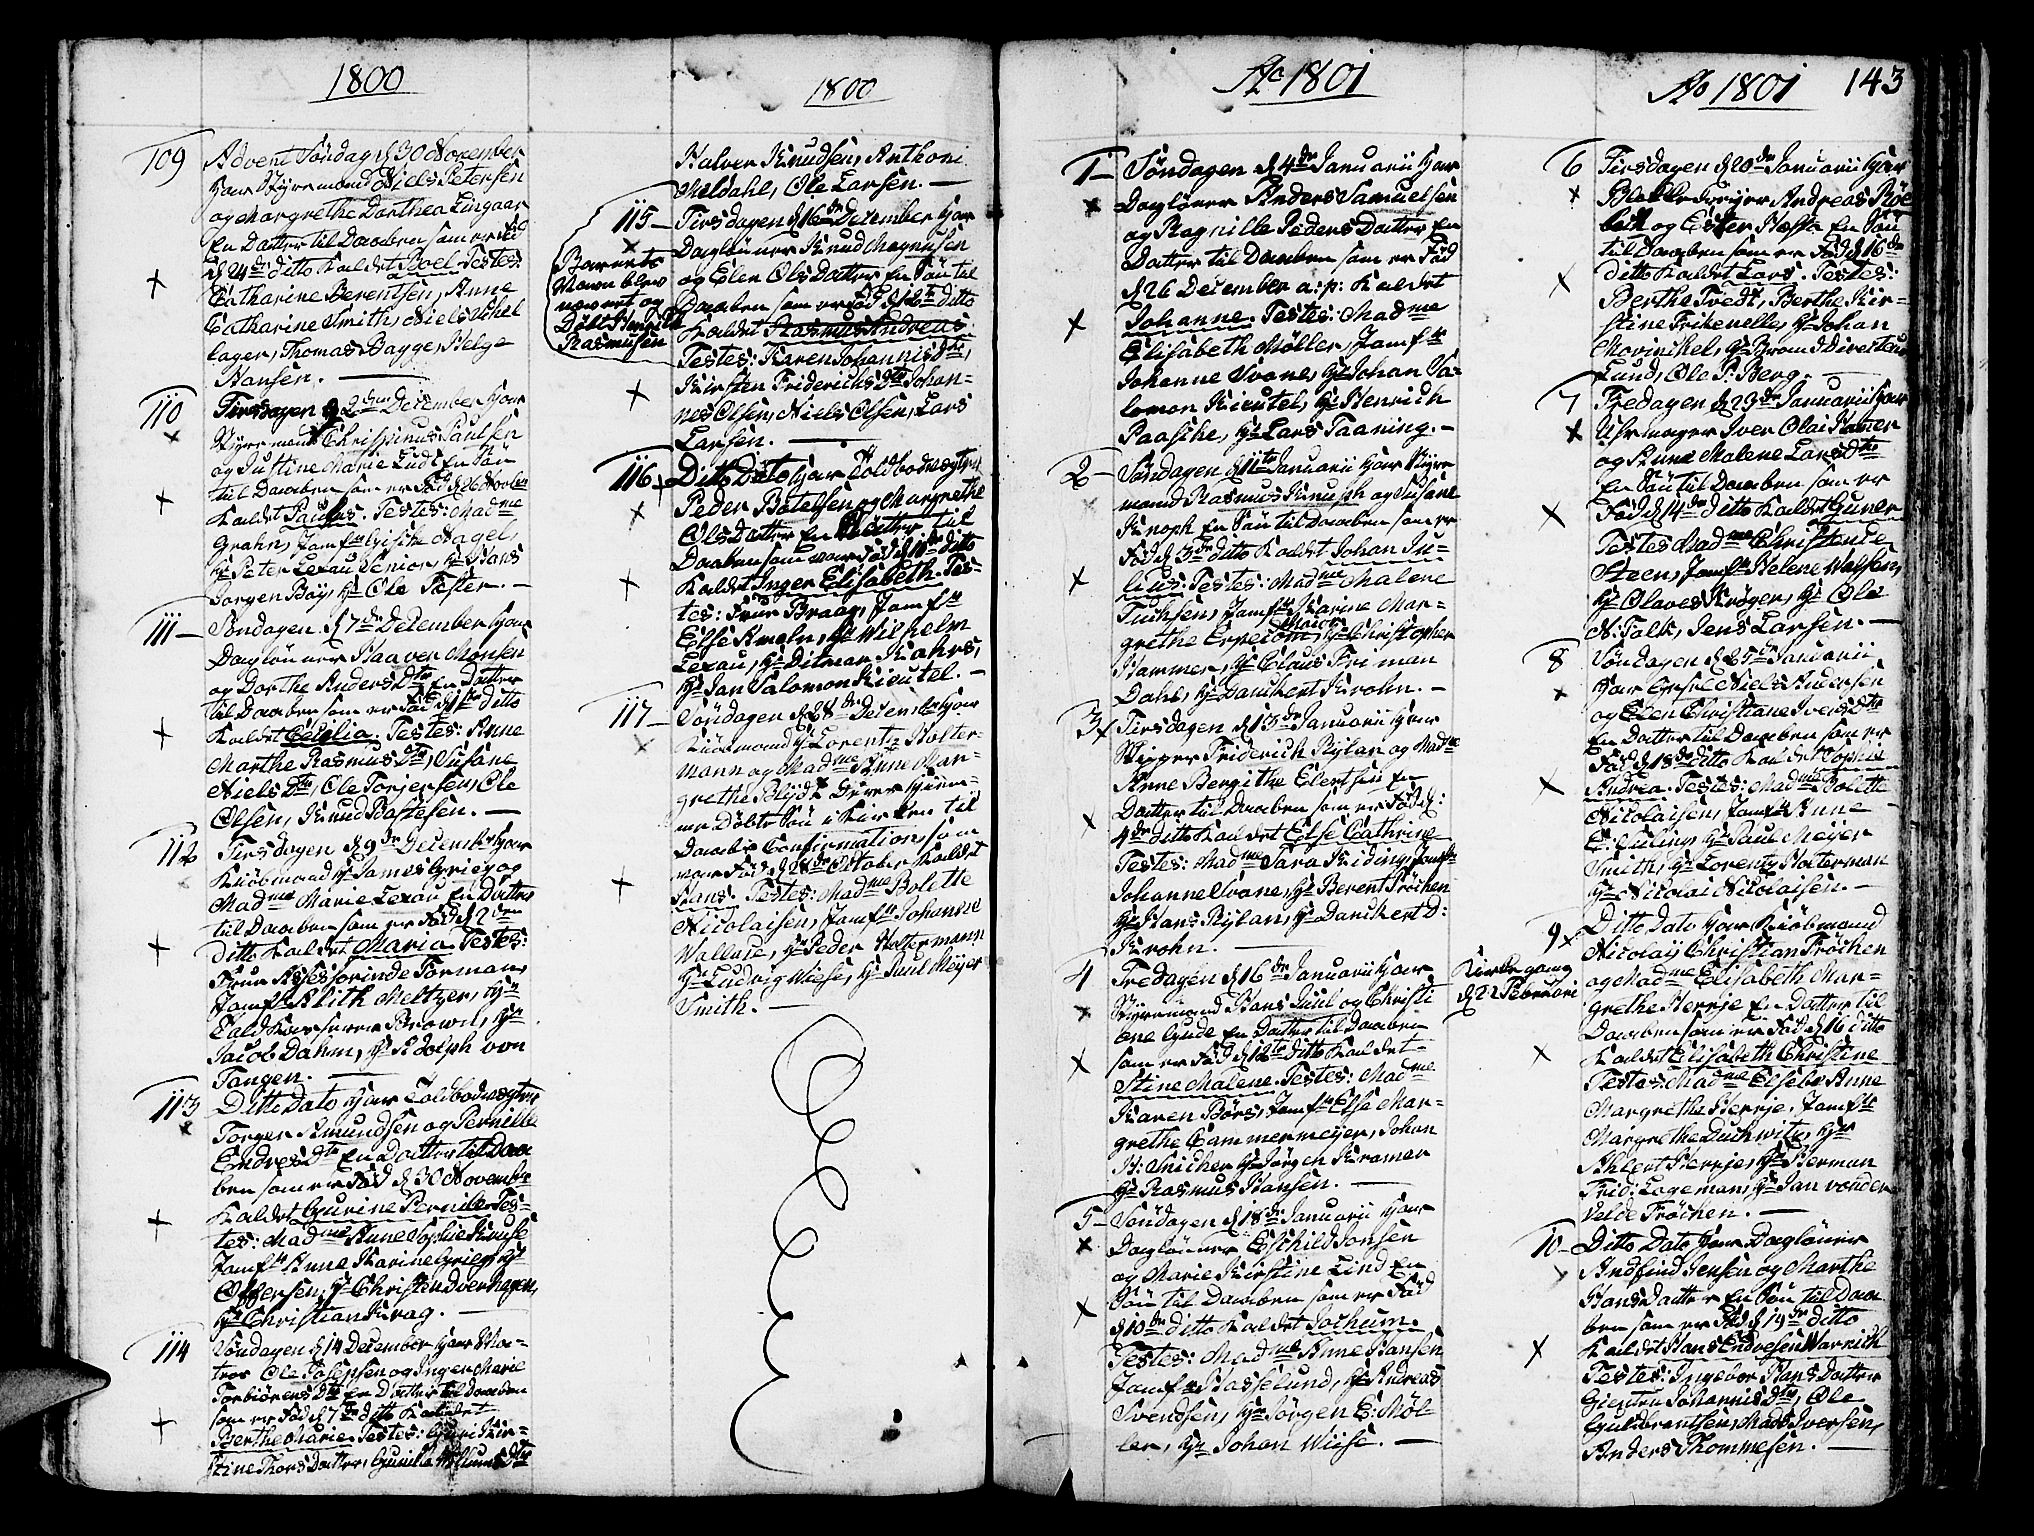 1800
109
Advent Söndag d 30 November
har Styremand Niels Petersen
og Margrethe Dorthea Lingaar
En Datter til Daaben som er fød
d 24de ditto Kaldet Boel. Testes:
Catharine Berentsen, Anne
Catharine Smith, Niels
lager, Thomas Bagge, Helge
Hansen.
110
Tirsdagen d 2den December har
Styremand Christinus Paulsen
og Justine Marie Lude En Sön
til Daaben som er Fød d 26 Novber
Kaldet Paulus. Testes: Madme
Grahn, Jomfr Gische Nagel,
Hr Peter Lexau Senior, Hr Hans
Jörgen Böy, Hr Ole Fæster.
111
Söndagen d 7de December har
Daglönner Haaver Monsen
og Dorthe Anders Dtr En Datter
til Daaben som er Fød d 1ste ditto
Kaldet Cecilia. Testes: Anne
Marthe Rasmus Dtr, Susane
Niels Dtr, Ole Torjersen, Ole
Olsen, Knud Bastesen.
112
Tirsdagen d 9de December har
Kiöbmand Hr James Grieg og
Madme Marie Lexau En Datter
til Daaben som er Fød d 2den
ditto Kaldet Maria. Testes:
Frue Assessorinde Forman,
Jomfr Alith Meltzer, Hr
Told Kasserer Brown, Hr
Jacob Dahm, Hr Adolph von
Tangen.
113
Ditto Dato har Toldbodvægter
Torger Amundsen og Pernille
Endres Dtr En Datter til Daa
ben som er Fød d 30 November
Kaldet Gurine Pernille. Tes-
tes: Madme Anne Sophie Kruse
Jomfr Anne Karine Grieg, Hr
Offersen, Hr Christen Dverhagen,
Hr Christian Krag.
114
Söndagen d 14 December har Ma-
tros Ole Josepsen og Inger Marie
Torbiörens Dtr En Datter til Daaben
som er Fød d 7de ditto Kaldet
Berthe Marie. Testes: Guri Kir-
stine Thors Datter, Gunilla Dtr
1800
Halver Knudsen, Anthoni
Meldahl, Ole Larsen.
115
Tirsdagen d 16de December har
Daglönner Knud Magnusen
og Elen Ols Datter En Sön til
Daaben som er Fød d 12te ditto
Kaldet Rasmus Andreas
Testes: Karen Johannis Dtr,
Kirsten Friderichs Dtr, Johan-
nes Olsen, Niels Olsen, Lars
Larsen.
Barnets
Navn blev
nævnt og
Döbt
Rasmusen
116
Ditto Dato har Toldbodvægter
Peder Botelsen og Margrethe
Ols Datter En Datter til
Daaben som var Fød d 10de ditto
Kaldet Inger Elisabeth. Tes-
tes: Frue Braag, Jomfr
Else Krahn, Hr Wilhelm
Lexau, Hr Ditmar Kahrs,
Hr Jan Salomon Kieutel.
117
Söndagen d 28de December har
Kiöbmand Hr Lorentz Holter-
mann og Madme Anne Mar-
grethe Blÿdt Deres hiem-
me Döbte Sön i Kirken til
Daabs Confirmation, som
var Fød d 28de October Kaldet
Hans. Testes: Madme Bolette
Nicolaisen, Jomfr Johanne
Wallace, Hr Peder Holtermann
Hr Ludvig Wiese, Hr Paul Meÿer
Smith.
Ao 1801
1
Söndagen d 4de Januarii har
Daglöner Anders Samuelsen
og Ragnille Peders Datter En
Datter til Daaben som er Fød
d 26 December a: p: Kaldet
Johanne. Testes: Madme
Elisabeth Möller, Jomfr
Johanne Svane, Hr Johan Sa-
lomon Kieutel, Hr Henrich
Paasche, Hr Lars Taaning.
2
Söndagen d 11te Januarii har Styre
mand Rasmus Knuph og Susane
Knoph En Sön til Daaben som er
Fød d 3de ditto Kaldet Johan Ju-
lius. Testes: Madme Malene
Tuchsen, Jomfr Karine Mar-
grethe Erpecom, Major Hr Christopher
Hammer, Hr Claus Friman
Dahl, Hr Danckert Krohn.
3
Tirsdagen d 13de Januarii har
Skipper Friderich Rylan og Madme
Anne Bergithe Elertsen En
Datter til Daaben som er Fød d:
4de ditto Kaldet Else Cathrine
Testes: Madme Sara Kiding, Jomfr
Johanne Svane, Hr Berent Fröchen
Hr Hans Rylan, Hr Danckert D:
Krohn.
4
Fredagen d 16de Januarii har
Styremand Hans Juul og Christi
ane Gude En Datter til Daaben
som er Fød d 12te ditto Kaldet
Stine Malene. Testes: Madme
Karen Börs, Jomfr Else Mar-
grethe Cammermeÿer, Johan
H: Snicker, Hr Jörgen Kramer
Hr Rasmus Hansen.
5
Söndagen d 18de Januarii har
Daglönner Eschild Jonsen
og Marie Kirstine Lind En
Sön til Daaben som er Fød
d 10de ditto Kaldet Jochum.
Testes: Madme Anne Hansen
Jomfr Hasselund, Hr Andreas
Svendsen, Hr Jörgen E: Möl-
ler, Hr Johan Wiise.
Ao 1801 143
6
Tirsdagen d 20de Januarii har
Blokkedreyer Andreas Röe
bech og Ester Hæsta En Sön
til Daaben som er Fød d 16de
ditto Kaldet Lars. Testes:
Berthe Tvedt, Berthe Kir-
stine Frikenelle, Hr Johan
Mowinckel, Hr Brand Directeur
Lund, Ole P: Berg.
7
Fredagen d 23de Januarii har
Uhrmager Iver Olai Hamer
og Anne Malene Lars Dtr
En Sön til Daaben som er
Fød d 14de ditto Kaldet Guner
Testes Madme Christense
Steen, Jomfr Helene Nielsen,
Hr Olaves Kröger, Hr Ole
N: Falk, Jens Larsen.
8
Söndagen d 25de Januarii
har Gesel Niels Andersen
og Elen Christiane Ivers Dtr
En Datter til Daaben som er
Fød d 18de ditto Kaldet Sophie
Andrea. Testes: Madme Bolette
Nicolaisen, Jomfr Anne
E: Euling, Hr Paul Meÿer
Smith, Hr Lorentz Holterman
Hr Nicolai Nicolaisen.
9
Kirkegang
d 22 Februarii
Ditto Dato har Kiöbmand
Nicolaÿ Christian Fröchen
og Madme Elisabeth Mar-
grethe Herrje En Datter til
Daaben som er Fød d 16 ditto
Kaldet Elisabeth Christine
Testes: Madme Elsebe Anne
Margrethe Herrje, Jomfr
Margrethe Duchwitz, Hr
Ahlert Herrje, Hr Herman
Frid: Logeman, Hr Jan vonder
Velde Fröchen.
10
Ditto Dato har Daglöner
Andfind Jensen og Marthe
Hans Datter En Sön til Daa
ben som er Fød d 19de ditto
Kaldet Hans Endresen Warnich
Testes: Ingebor Hans Datter
Gierten Johannis Dtr, Ole
Guldbrantsen, Mads Iversen,
Anders Thommesen.